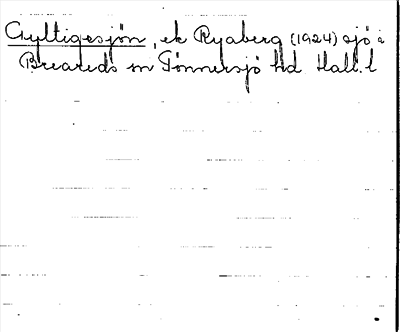 Gyltigesjön, ek Ryaberg (1924) sjö i
Breareds sn Tönnersjö hd Hall. l